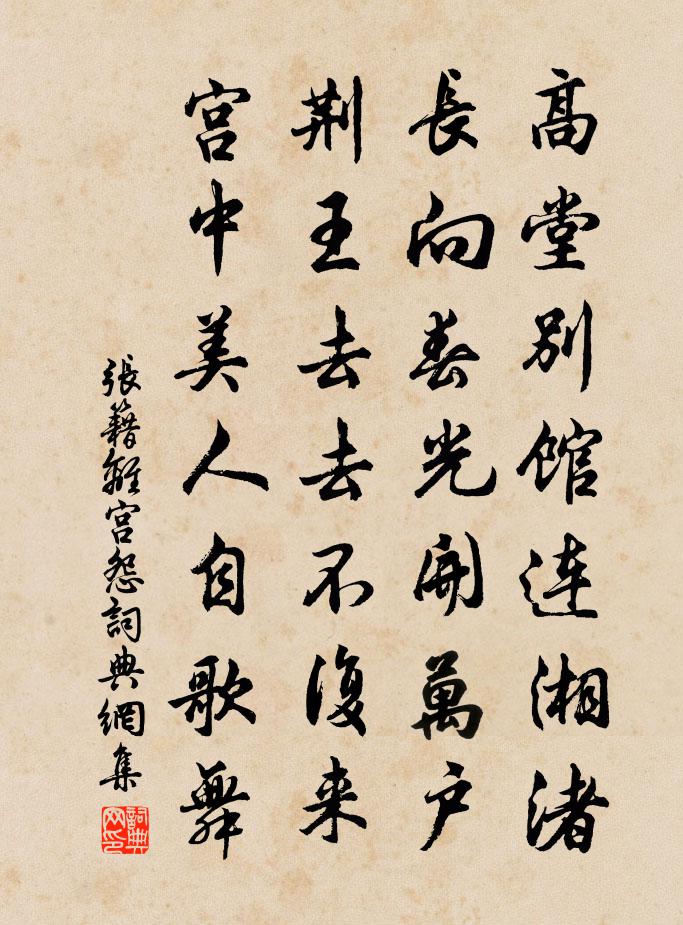 高堂別館連湘渚
長向春光開萬戶
荆王去去不復来
宮中美人自歌舞
張籍離宮怨詞典網集
詞典网印